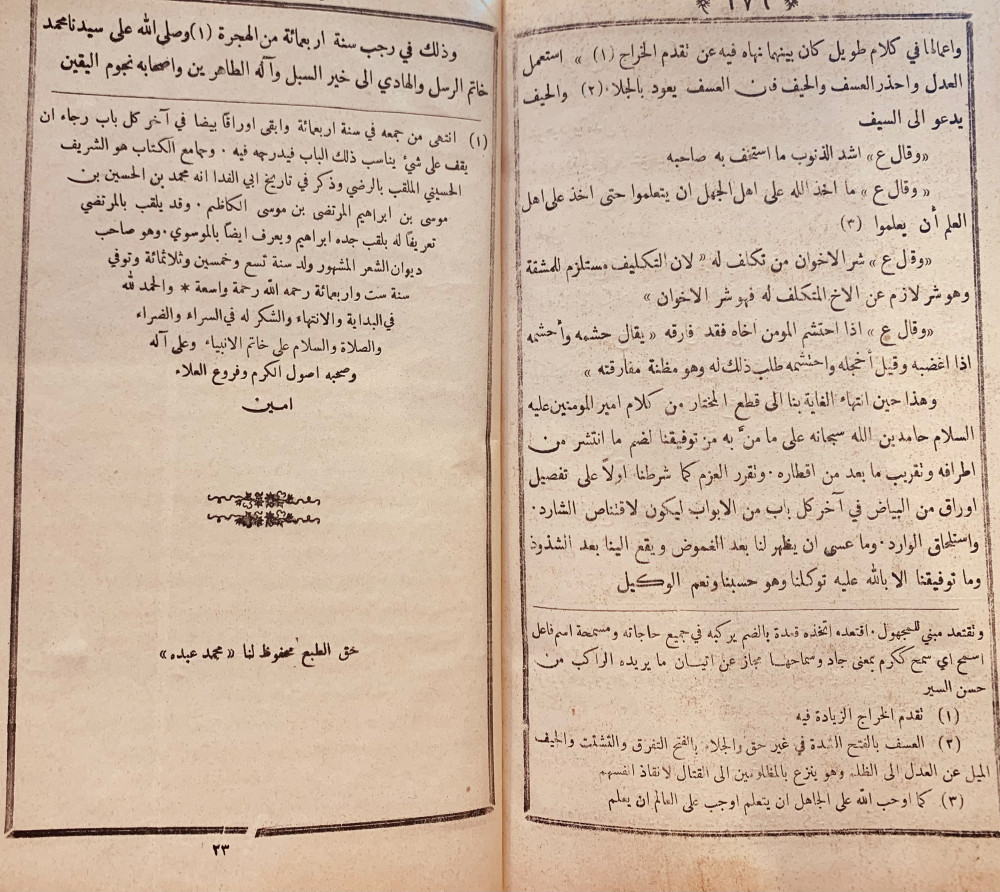 واعمالها في كلام طويل كان بينهما نهاه فيه عن تقدم الخراج (١) » استعمل
العدل واحذر العسف والحيف فان العسف يعود بالجلاء (٢) والحيف
يدعو الى السيف
«وقال ع» اشد الذنوب ما استخف به صاحبه
« وقال ع » ما اخذ الله على اهل الجهل ان يتعلموا حتى اخذ على اهل
العلم أن يعلموا (٣)
«وقال ع» شر الاخوان من تكلف له « لان التكليف مستلزم للمشقة
وهو شر لازم عن الاخ المتكلف له فهو شر الاخوان »
«وقال ع» اذا احتشم المومن اخاه فقد فارقه « يقال حشمه وأحشمه
اذا اغضبه وقيل أخجله واحتشمه طلب ذلك له وهو مظنة مفارقته »
وهذا حين انتهاء الغاية بنا الى قطع المختار من كلام امير المومنين عليه
السلام حامدين الله سبحانه على ما منَّ به من توفيقنا لضم ما انتشر من
اطرافه وتقريب ما بعد من اقطاره ٠ ونقرر العزم كما شرطنا اولاً على تفصيل
اوراق من البياض في آخر كل باب من الابواب ليكون لاقتناص الشارد ٠
واستلحاق الوارد ٠ وما عسى ان يظهر لنا بعد الغموض ويقع الينا بعد الشذوذ
وما توفيقنا الا بالله عليه توكلنا وهو حسبنا ونعم الوكيل
وتقتعد مبني للمجهول ٠ اقتعده اتخذه قعدة بالضم يركبه في جميع حاجاته ومسمحة اسم فاعل
اسمح اي سمح ككرم بمعنى جاد وسماحها مجاز عن اتيان ما يريده الراكب من
حسن السير
(١) تقدم الخراج الزيادة فيه
(٢) العسف بالفتح الشدة في غير حق والجلاء بالفتح التفرق والتشتت والحيف
الميل عن العدل الى الظلم وهو ينزع بالمظلومين الى القتال لانقاذ انفسهم
(٣) كما اوجب الله على الجاهل ان يتعلم اوجب على العالم ان يعلم
وذلك في رجب سنة اربعمائة من الهجرة (١) وصلى الله على سيدنا محمد
خاتم الرسل والهادي الى خير السبل وآله الطاهرين واصحابه نجوم اليقين
(١) انتهى من جمعه في سنة اربعمائة وابقى اوراقًا بيضا في آخر كل باب رجاء ان
يقف على شئ يناسب ذلك الباب فيدرجه فيه ٠ وجامع الكتاب هو الشريف
الحسيني الملقب بالرضي وذكر في تاريخ ابي الفدا انه محمد بن الحسين بن
موسى بن ابراهيم المرتضى بن موسى الكاظم ٠ وقد يلقب بالمرتضي
تعريفًا له بلقب جده ابراهيم ويعرف ايضاً بالموسوي ٠ وهو صاحب
ديوان الشعر المشهور ولد سنة تسع وخمسين وثلاثمائة وتوفي
سنة ست واربعمائة رحمه الله رحمة واسعة * والحمد لله
في البداية والانتهاء والشكر له في السراء والضراء
والصلاة والسلام على خاتم الانبياء وعلى آله
وصحبه اصول الكرم وفروع العلاء
امين
حق الطبع محفوظ لنا « محمد عبده »
٢٣